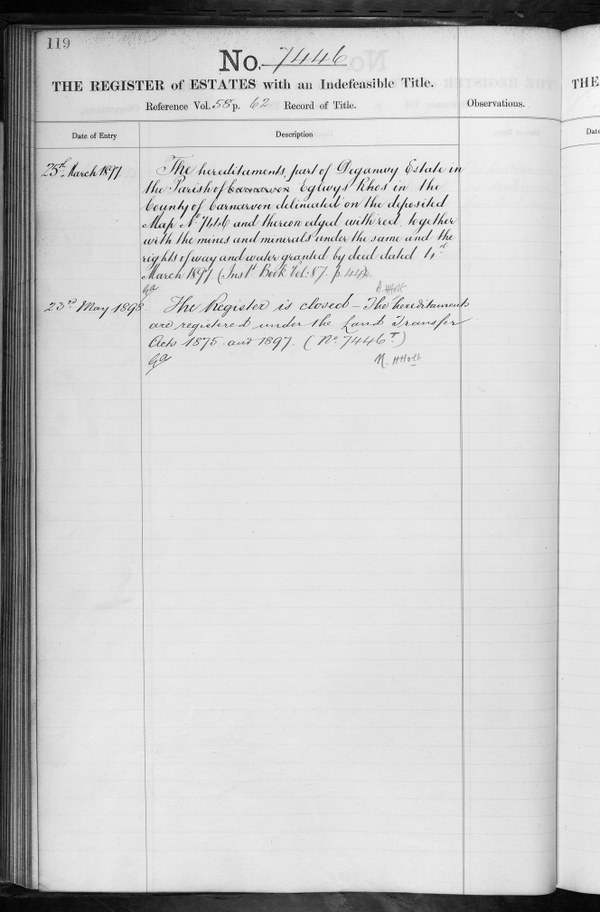 119
No. 7446
THE REGISTER of ESTATES with an Indefeasible Title.
Reference Vol. 58 p. 62 Record of Title.
Observations.
Date of Entry
Description
25th March 1897
The hereditaments, part of Deganwy Estate in
the Parish of Carnarvon Eglwys Rhos in the
County of Carnarvon delineated on the deposited
Map No 7446 and thereon edged with red, together
with the mines and minerals under the same and the
rights of way and water granted by deed dated
March 1897 (Inst Book Vol. 87. p 442.
Holt
23rd May 1898
The Register is closed – The hereditaments
are registered under the Land Transfer
Acts 1875 and 1897. (No 7446T)
Holt
THE
Date